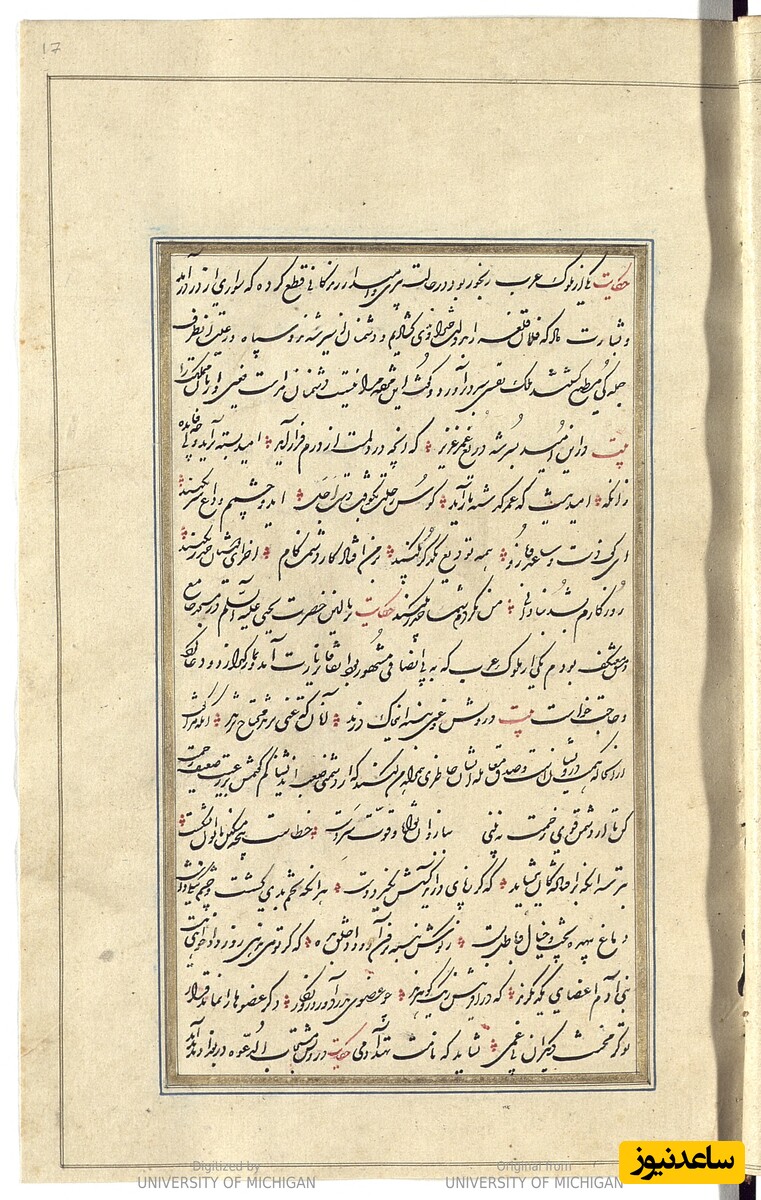 17
حکایت یکی از ملوک عرب رنجور بود در حالت پیری و امید از زندگانی قطع کرده که سواری از در درآمد
و بشارت داد که فلان قلعه را بدولت خداوندی گشادیم و دشمنان اسیر شدند و سپاه و رعیت آنطرف
جملگی مطیع گشتند ملک نفسی سرد برآورد و گفت این مژده مرا نیست دشمنان مراست یعنی وارثان مملکت را
بیت درین امید بسر شد دریغ عمر عزیز که آنچه در دلمست از درم فراز آید امید بسته برآمد ولی چه فایده
زانکه امید نیست که عمر گذشته باز آید کوس رحلت بکوفت دست اجل ای دو چشمم وداع سر بکنید
ای کف دست و ساعد و بازو همه تودیع یکدگر بکنید بر من افتاده دشمن کام آخر ای دوستان گذر بکنید
روزگارم بشد بنادانی من نکردم شما حذر بکنید حکایت بر بالین حضرت یحیی علیه السلام در مسجد جامع
دمشق معتکف بودم یکی از ملوک عرب که به بی انصافی مشهور بود اتفاقا بزیارت آمد و نماز گزارد و دعا کرد
و حاجت خواست بیت درویش و غنی بنده این خاک درند آنان که غنی ترند محتاج ترند آنگه مرا گفت
از آنجا که همت درویشان است و صدق معامله ایشان خاطری همراه من کنید که از دشمنی صعب اندیشناکم گفتمش بر رعیت ضعیف رحمت
کن تا از دشمن قوی زحمت نه بینی ببازوان توانا و قوت سر دست خطاست پنجه مسکین ناتوان بشکست
نترسد آنکه بر افتادگان نبخشاید که گر ز پای درآید کسش نگیرد دست هر آنکه تخم بدی کشت و چشم نیکی داشت
دماغ بیهده پخت و خیال باطل بست ز گوش پنبه برون آر و داد خلق بده که گر تو می ندهی داد روز دادی هست
بنی آدم اعضای یکدیگرند که در آفرینش ز یک گوهرند چو عضوی بدرد آورد روزگار دگر عضوها را نماند قرار
تو کز محنت دیگران بی غمی نشاید که نامت نهند آدمی حکایت درویشی مستجاب الدعوه در بغداد پدید آمد
Digitized by
UNIVERSITY OF MICHIGAN
Original from
UNIVERSITY OF MICHIGAN
ساعدنیوز